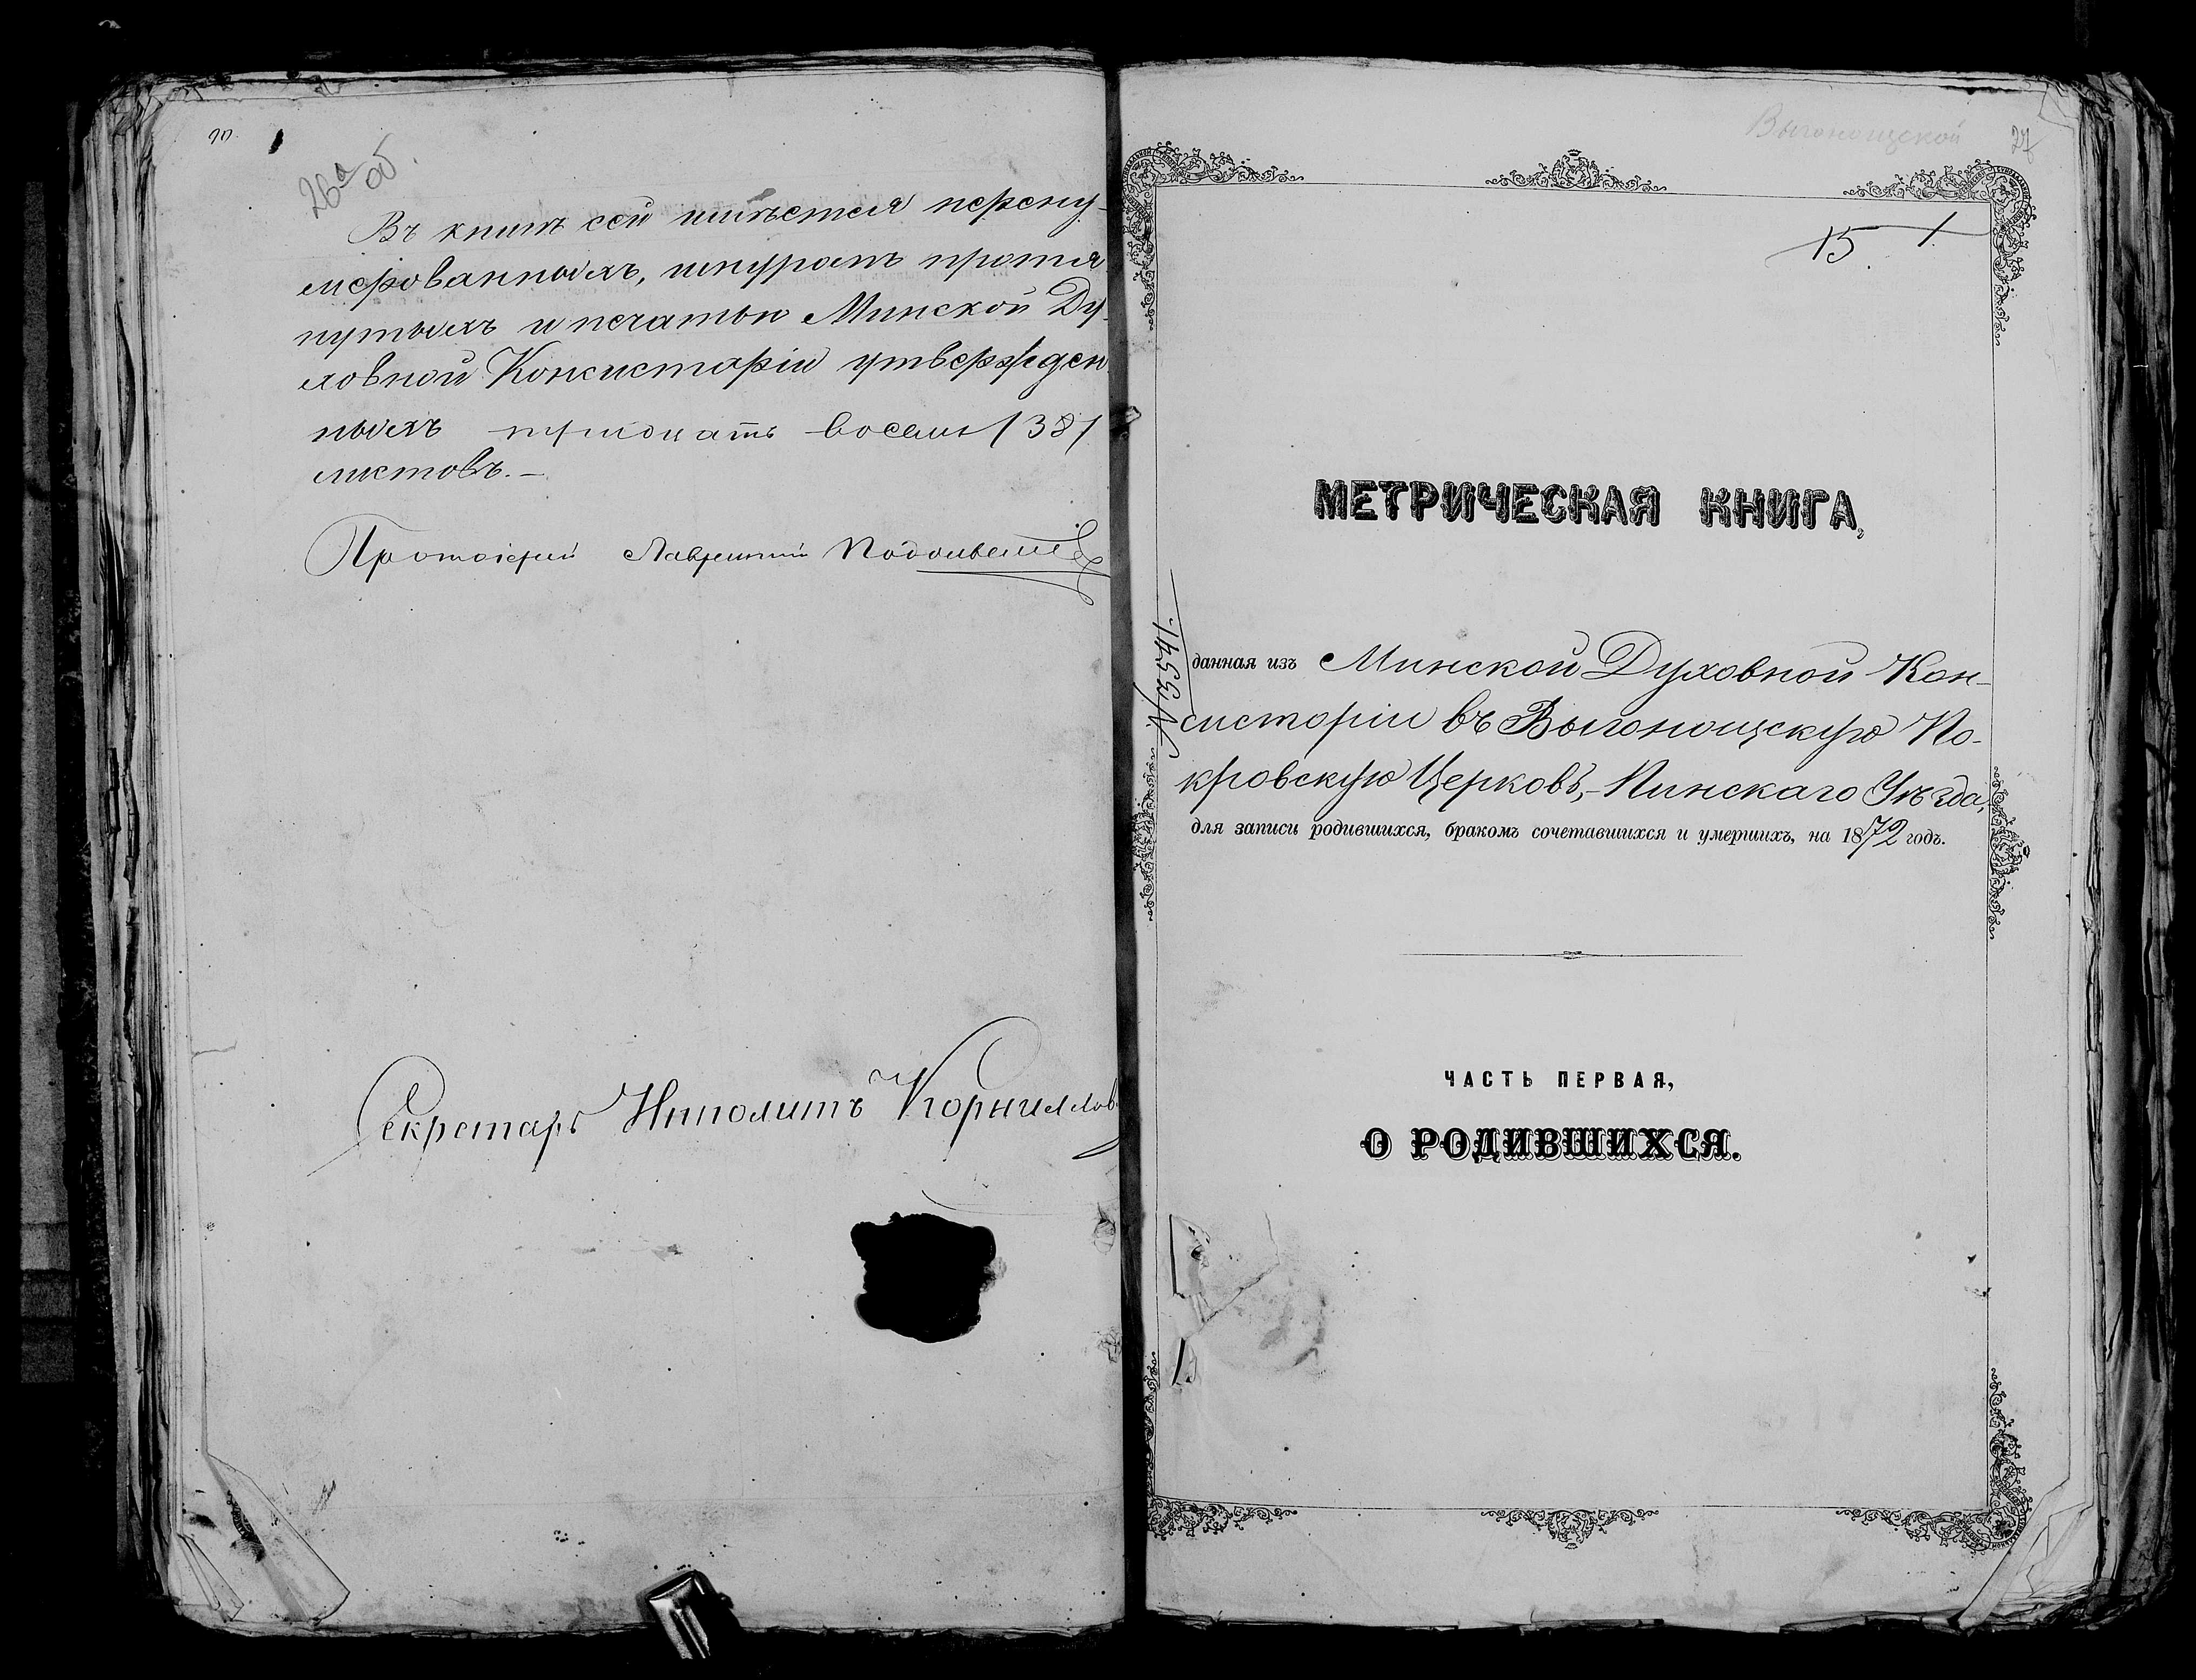 90
26а об.
Въ книгѣ сей имѣется перену-
мерованныхъ, шнуромъ протя
нутыхъ и печатью Минской Ду-
ховной Консисторіи утвержден
ныхъ тридцать восемь /38/
листовъ. —
Протоіерей Лаврентій
Секретарь Ипполитъ Корниллов
Выгонощской 27
15. 1.
МЕТРИЧЕСКАЯ КНИГА,
№ 3541.
данная изъ Минской Духовной Кон-
систоріи въ Выгонощскую По-
кровскую Церковь, Пинскаго Уѣзда,
для записи родившихся, бракомъ сочетавшихся и умершихъ, на 1872 годъ.
ЧАСТЬ ПЕРВАЯ,
О РОДИВШИХСЯ.